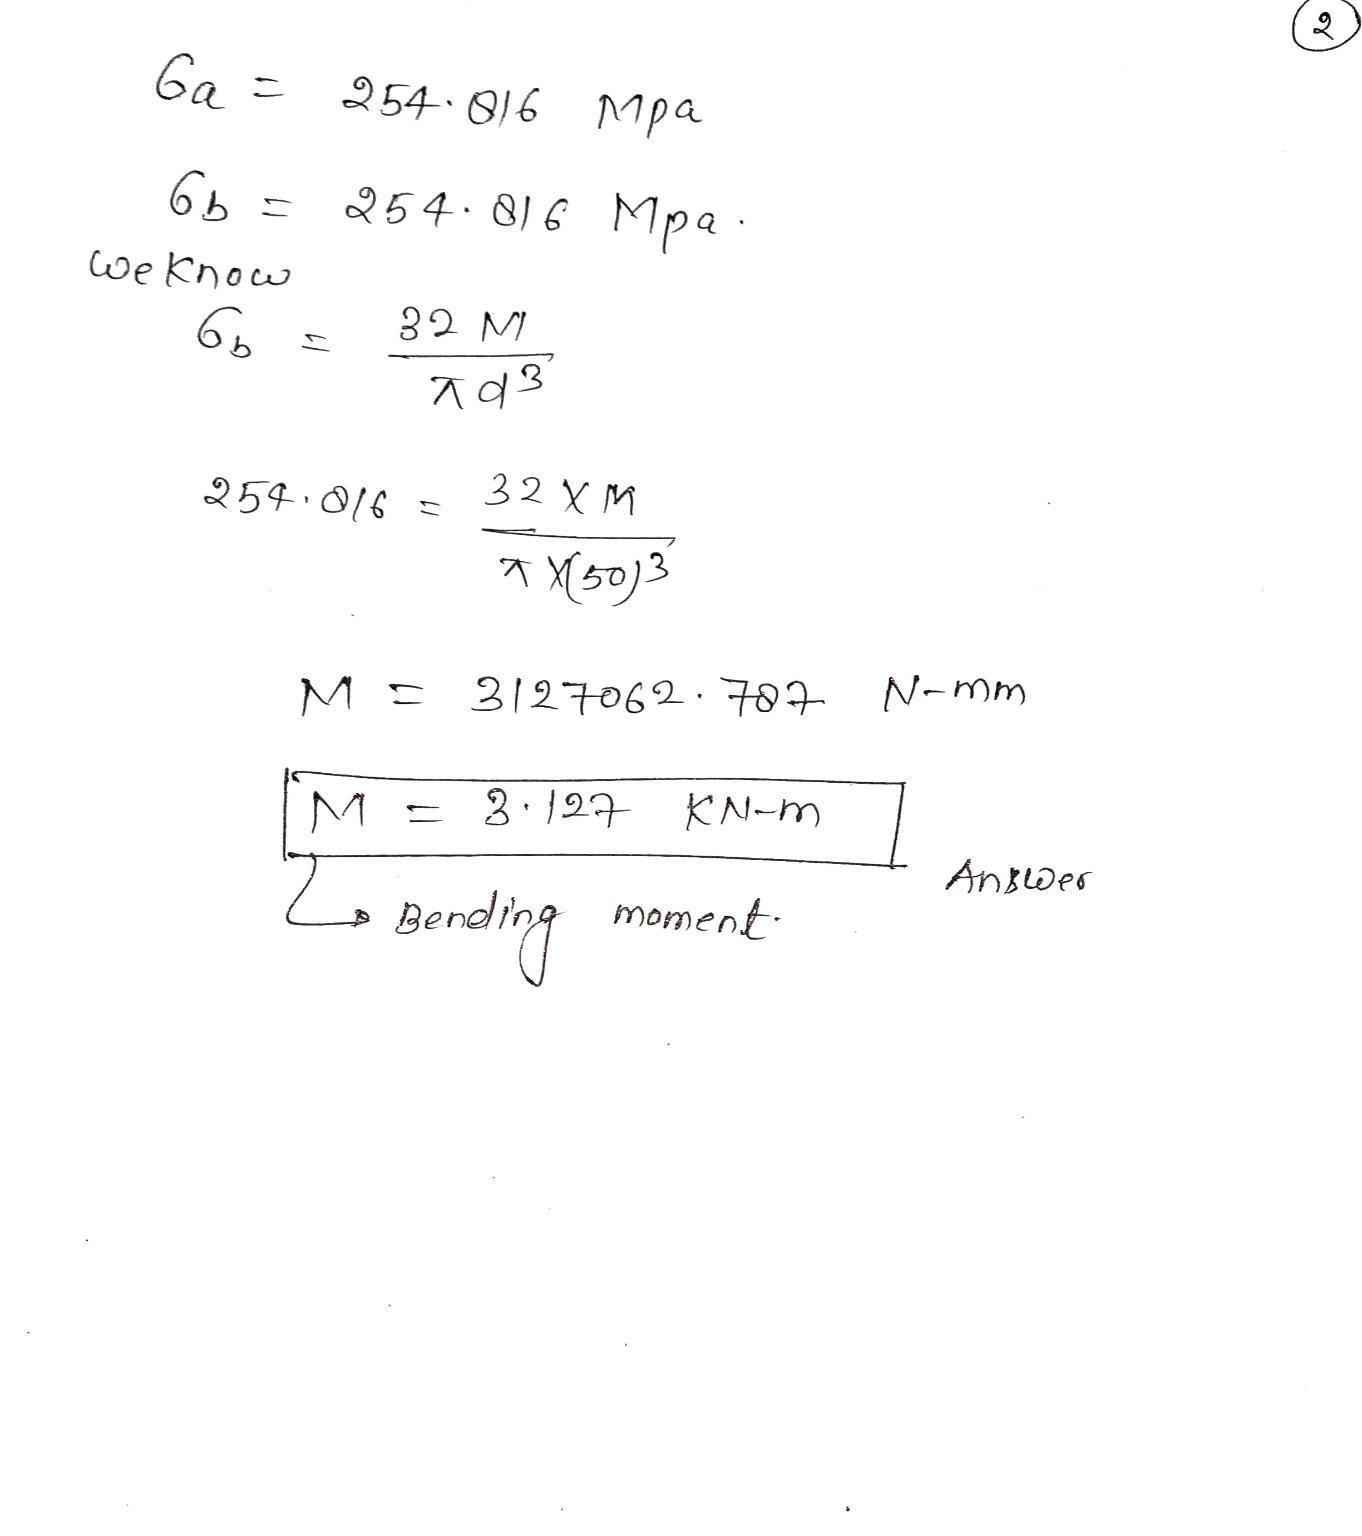 2
σa = 254.816 Mpa
σb = 254.816 Mpa.
We Know
σb = 32 M / πd³
254.816 = 32 X M / π X(50)³
M = 3127062.787 N-mm
M = 3.127 KN-m
Answer
Bending moment.